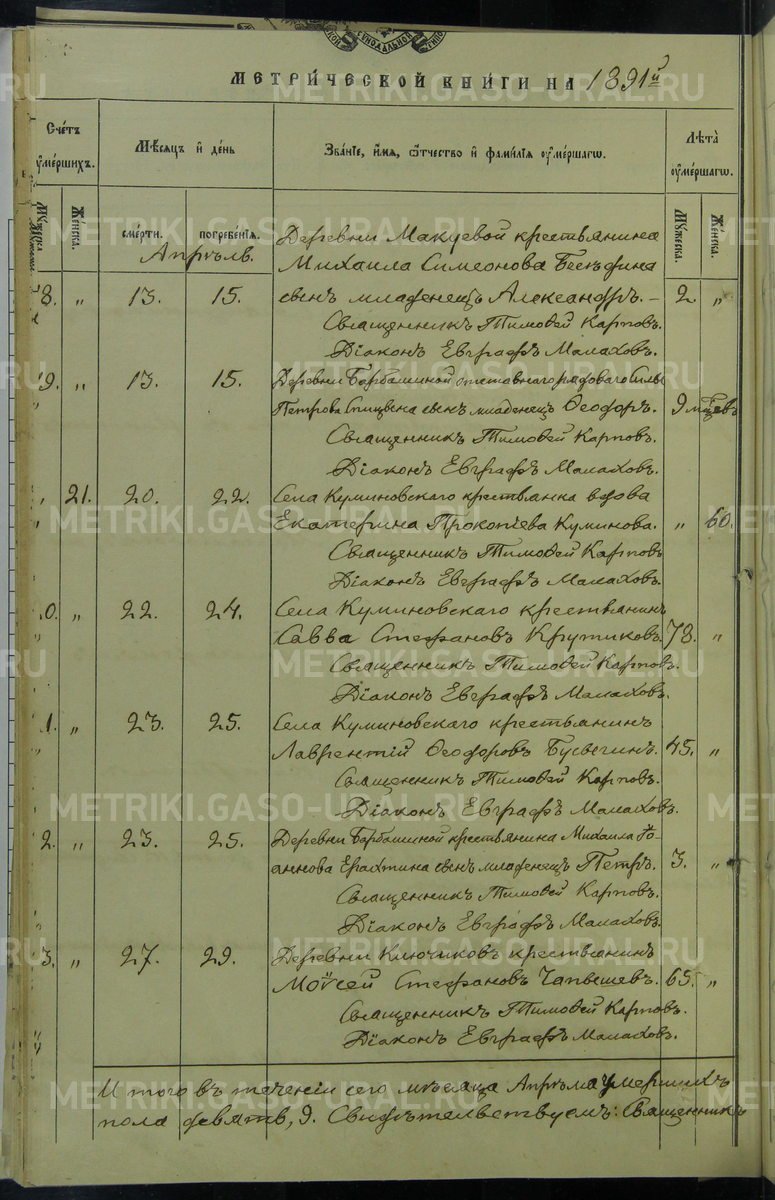 МЕТРИ́ЧЕСКОЙ КНИ́ГИ НА 1891й
Сче́тъ ᲂу҆ме́ршихъ.
Мѣ́сяцъ и҆ де́нь
Зва́нїе, и҆́мѧ, ѻ҆́тчество и҆ фами́лїѧ ᲂу҆ме́ршагѡ.
Лѣ́та ᲂу҆ме́ршагѡ.
Же́нска.
сме́рти.
погребе́нїѧ.
Мꙋ́жеска.
Же́нска.
Апрѣль.
Деревни Макуевой крестьянина
Михаила Симеонова
8. „ 13. 15. сынъ младенецъ Александръ. – 2. „
Священникъ Тимоѳей Карповъ.
Діаконъ Евграфъ Малаховъ.
9. „ 13. 15. Деревни Барбашиной отставнаго рядоваго
Петрова сынъ младенецъ Ѳеодоръ. 9 мѣсяцевъ
Священникъ Тимоѳей Карповъ.
Діаконъ Евграфъ Малаховъ.
„ 21. 20. 22. Села Куминовскаго крестьянка вдова
Екатерина Прокопіева Куминова. „ 60.
Священникъ Тимоѳей Карповъ
Діаконъ Евграфъ Малаховъ.
0. „ 22. 24. Села Куминовскаго крестьянинъ
Савва Стефановъ Крутиковъ. 78. „
Священникъ Тимоѳей Карповъ.
Діаконъ Евграфъ Малаховъ.
1. „ 23. 25. Села Куминовскаго крестьянинъ
Лаврентій Ѳеодоровъ Бусыгинъ. 45. „
Священникъ Тимоѳей Карповъ.
Діаконъ Евграфъ Малаховъ.
2. „ 23. 25. Деревни Барбашиной крестьянина Михаила Іо-
аннова сынъ младенецъ Петръ. 3. „
Священникъ Тимоѳей Карповъ.
Діаконъ Евграфъ Малаховъ.
3. „ 27. 29. Деревни Ключиковъ крестьянинъ
Моѵсей Стефановъ Чапышевъ. 65. „
Священникъ Тимоѳей Карповъ.
Діаконъ Евграфъ Малаховъ.
Итого въ теченіи сего мѣсяца Апрѣля умершихъ
пола девять, 9. Свидѣтельствуемъ: Священникъ
METRIKI.GASO-URAL.RU